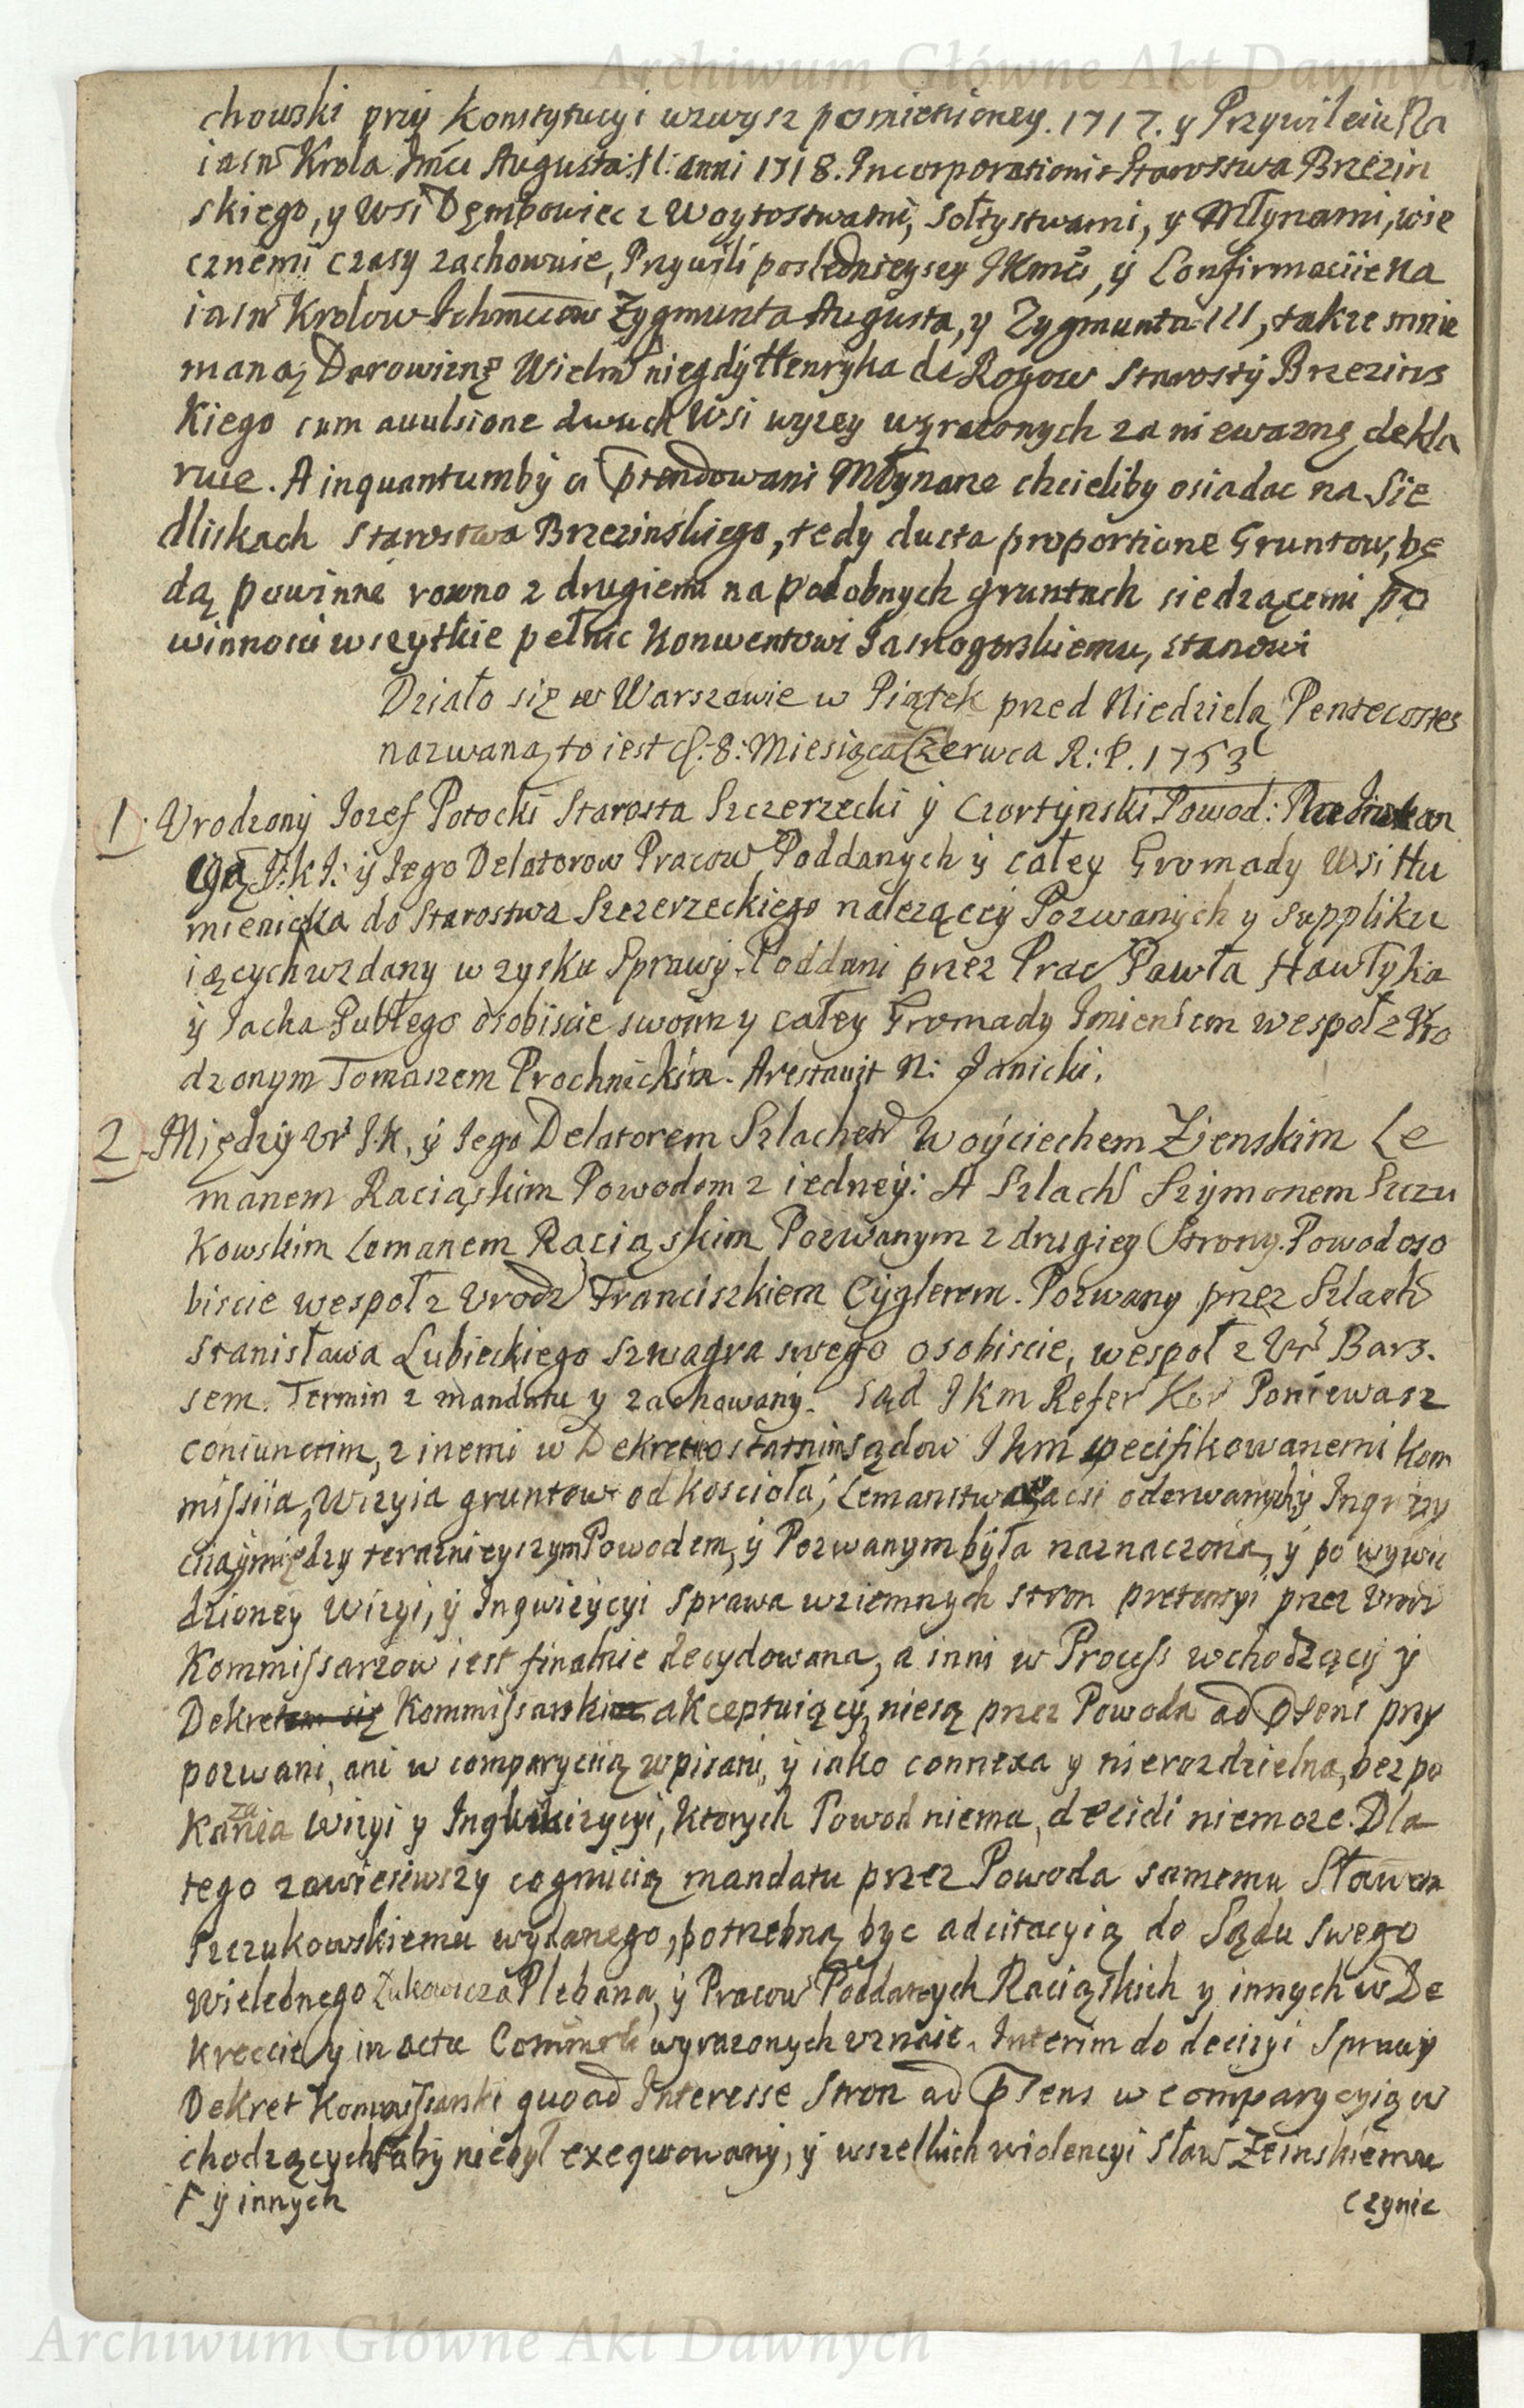 Archiwum Główne Akt Dawnych
chowski przy Konstytucyi wzwysz pomienioney. 1717. y Przywileiu Na
iasń Krola Jmći Augusta II. anni 1718. Incorporationis Starostwa Brzezin
skiego, y Wsi Dęmbowiec z Woytostwami, Sołtystwami, y Młynami, wie
cznemi czasy zachowuie, Przywili poslednieysey JKmći, y Confirmaciie Na
iasń Krolow Ichmciow Zygmunta Augusta, y Zygmunta III, takze mnie
maną Darowiznę Wielm niegdy Henryka de Rogow Starosty Brzezins
kiego cum auulsione dwuch Wsi wyzey wyrazonych za niewazne dekla
ruie. A inquantumby ci ptendowani Młynarze chcieliby osiadac na Sie
dliskach Starostwa Brzezinskiego, tedy ducta proportione Gruntow, bę
dą powinni rowno z drugiemi na podobnych gruntach siedzącemi po
winnosci wszytkie pełnic Konwentowi Jasnogorskiemu, stanowi
Działo się w Warszawie w Piątek przed Niedzielą Pentecostes
nazwaną, to iest d. 8. Miesiąca Czerwca R. P. 1753
1. Vrodzony Jozef Potocki Starosta Szczerzecki y Czortynski Powod:
J. K. J. y Jego Delatorow Pracow Poddanych y całey Gromady Wsi Hu
mieniecka do Starostwa Szczerzeckiego nalezącey Pozwanych y Suppliku
iących wzdany w zysku Sprawy. Poddani przez Prac Pawła Hawłyka
y Jacka Pubłego osobiscie swoim y całey Gromady Imieniem wespoł z Vro
dzonym Tomaszem Prochnickim. Arestavit N: Janicki.
2. Między Vr J. K. y Jego Delatorem Szlachet Woyciechem Zienskim Le
manem Raciąskim Powodem z iedney: A Szlach Szymonem Szczu
kowskim Lemanem Raciąskim Pozwanym z drugiey Strony. Powod oso
biscie wespoł z Vrodz Franciszkiem Cyglerem. Pozwany przez Szlach
Stanisława Lubieckiego Szwagra swego osobiscie, wespoł z Vr Bars.
sem. Termin z mandatu y zachowany. Sąd JKm Refer Kor Poniewasz
coniunctim, z inemi w Dekrecie ostatnim Sądow JKm specifikowanemi Kom
missiia, Wizyia gruntow od Koscioła, Lemanstwa oderwanych y Ingwizy
ciia między teraznieyszym Powodem, y Pozwanym była naznaczona, y po wywie
dzioney Wizyi, y Ingwizycyi Sprawa wziemnych stron pretensyi przez Vrodz
Kommissarzow iest finalnie decydowana, a inni w Process wchodzący y
Dekretem się Kommissarskim akceptuiący, niesą przez Powoda ad psens przy
pozwani, ani w comparyciią wpisani, y iako connexa y nierozdzielna, bez po
Kazania Wizyi y Ingwizycyi, Ktorych Powod niema, decidi niemoze. Dla
tego zawiesiwszy cognicią mandatu przez Powoda samemu Sławem
Szczukowskiemu wydanego, potrzebną byc adcitacyią do Sądu swego
Wielebnego Zukowicza Plebana, y Pracow Poddanych Raciąskich y innych w De
krecie y in actu Commis wyrazonych uznaie. Interim do decizyi Sprawy
Dekret Kommissarski quoad Interesse Stron ad psens w comparycyią w
chodzących aby niebył exeqwowany, y wszelkich violencyi Sław Zeinskiemu
F y innych
czynic
Archiwum Główne Akt Dawnych